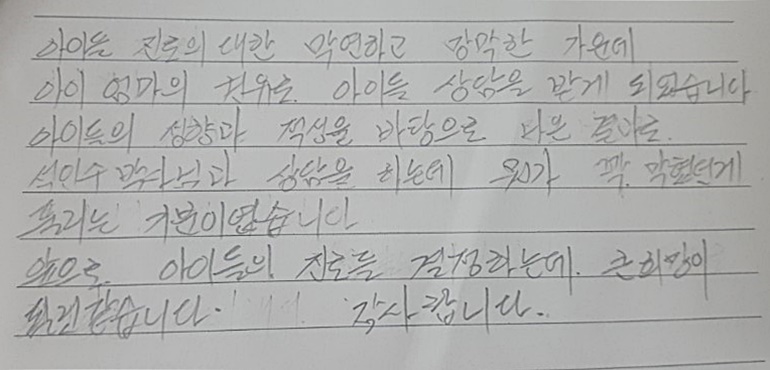 아이들 진로의 대한 막연하고 강막한 가운데
아이 엄마의 권유로 아이들 상담을 받게 되었습니다
아이들의 성향과 적성을 바탕으로 나온 결과로
석인수 박사님과 상담을 하는데 뭔가 꽉 막혔던게
풀리는 기분이였습니다
앞으로 아이들의 진로를 결정하는데 큰희망이
될것같습니다. 감사합니다.